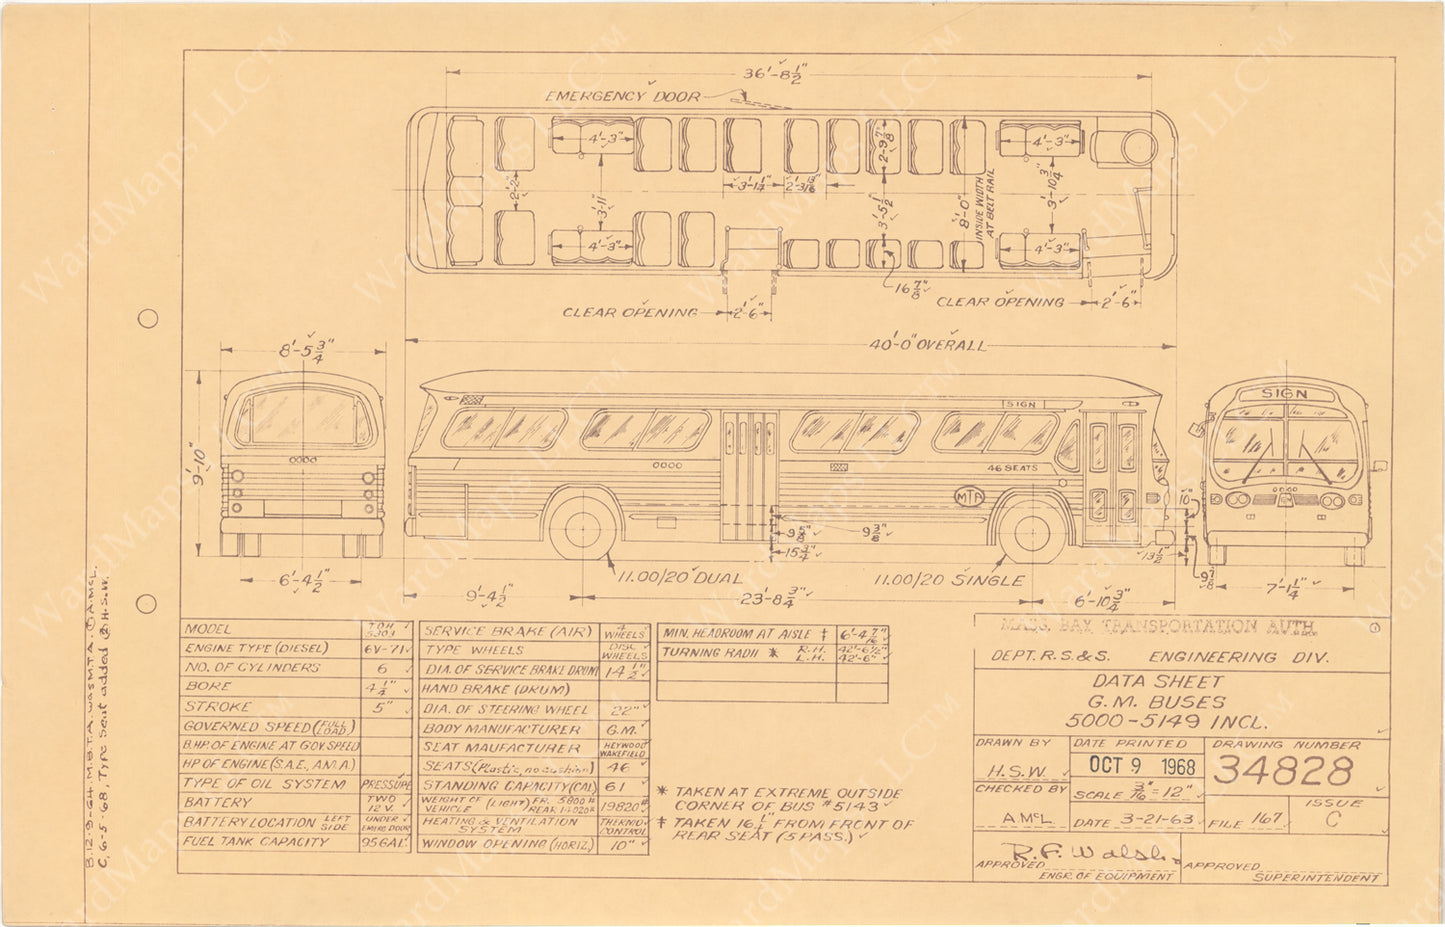 36'-8 1/2"
EMERGENCY DOOR
4'-3"
2'-9 7/8"
4'-3"
2'-2"
3'-11"
3'-1 1/4"
3'-5 1/2"
8'-0"
INSIDE WIDTH
AT BELT RAIL
3'-10 3/4"
4'-3"
4'-3"
16 7/8"
CLEAR OPENING
2'-6"
CLEAR OPENING
2'-6"
40'-0" OVERALL
8'-5 3/4"
9'-10"
0000
6'-4 1/2"
SIGN
0000
46 SEATS
MTA
9 5/8"
15 3/4"
9 3/8"
10"
13 1/2"
11.00/20 DUAL
11.00/20 SINGLE
9'-4 1/2"
23'-8 3/4"
6'-10 3/4"
SIGN
0000
9 7/8"
7'-1 1/4"
MODEL TDH 5301
ENGINE TYPE (DIESEL) 6V-71
NO. OF CYLINDERS 6
BORE 4 1/4"
STROKE 5"
GOVERNED SPEED (FULL LOAD)
B.HP. OF ENGINE AT GOV. SPEED
HP OF ENGINE (S.A.E., A.M.A.)
TYPE OF OIL SYSTEM PRESSURE
BATTERY TWO 12 V.
BATTERY LOCATION LEFT SIDE UNDER EMERG DOOR
FUEL TANK CAPACITY 95 GAL.
SERVICE BRAKE (AIR) 4 WHEELS
TYPE WHEELS DISC WHEELS
DIA. OF SERVICE BRAKE DRUM 14 1/2"
HAND BRAKE (DRUM)
DIA. OF STEERING WHEEL 22"
BODY MANUFACTURER G.M.
SEAT MAUFACTURER HEYWOOD WAKEFIELD
SEATS (Plastic, no cushion) 46
STANDING CAPACITY (CAL) 61
WEIGHT OF VEHICLE (LIGHT) FR. 5800# REAR 14020# 19820#
HEATING & VENTILATION SYSTEM THERMO CONTROL
WINDOW OPENING (HORIZ.) 10"
MIN. HEADROOM AT AISLE ‡ 6'-4 7/16"
TURNING RADII * R.H. 42'-6 1/2"
L.H. 42'-6"
* TAKEN AT EXTREME OUTSIDE
CORNER OF BUS #5143
‡ TAKEN 16 1/4" FROM FRONT OF
REAR SEAT (5 PASS.)
MASS. BAY TRANSPORTATION AUTH
DEPT. R.S.&S. ENGINEERING DIV.
DATA SHEET
G.M. BUSES
5000-5149 INCL.
DRAWN BY
H.S.W.
DATE PRINTED
OCT 9 1968
DRAWING NUMBER
34828
CHECKED BY
A.McL.
SCALE 3/16"=12"
DATE 3-21-63
FILE 167
ISSUE
C
R.F. Walsh
APPROVED
ENGR. OF EQUIPMENT
APPROVED
SUPERINTENDENT
B.12-9-64. M.B.T.A. was M.T.A. A.McL.
C. 6-5-68, Type seat added H.S.W.
WardMaps LLC™